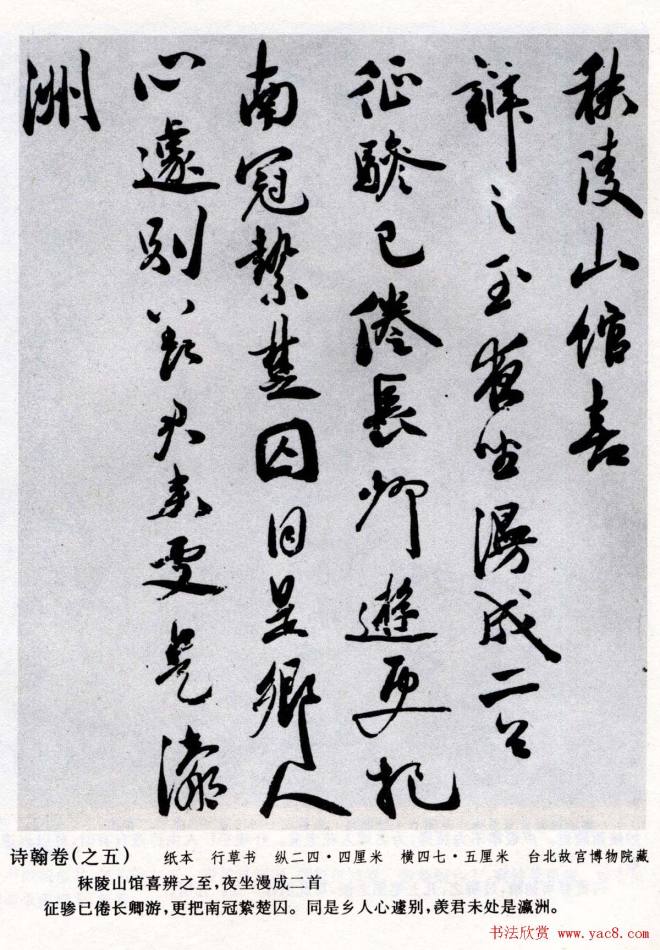 秣陵山館喜
辨之至夜坐漫成二首
征驂已倦長卿遊更把
南冠縶楚囚同是鄉人
心遽別羨君來處是瀛
洲
诗翰卷(之五) 纸本 行草书 纵二四·四厘米 横四七·五厘米 台北故宫博物院藏
秣陵山馆喜辨之至,夜坐漫成二首
征骖已倦长卿游,更把南冠絷楚囚。同是乡人心遽别,羡君未处是瀛洲。
书法欣赏 www.yac8.com